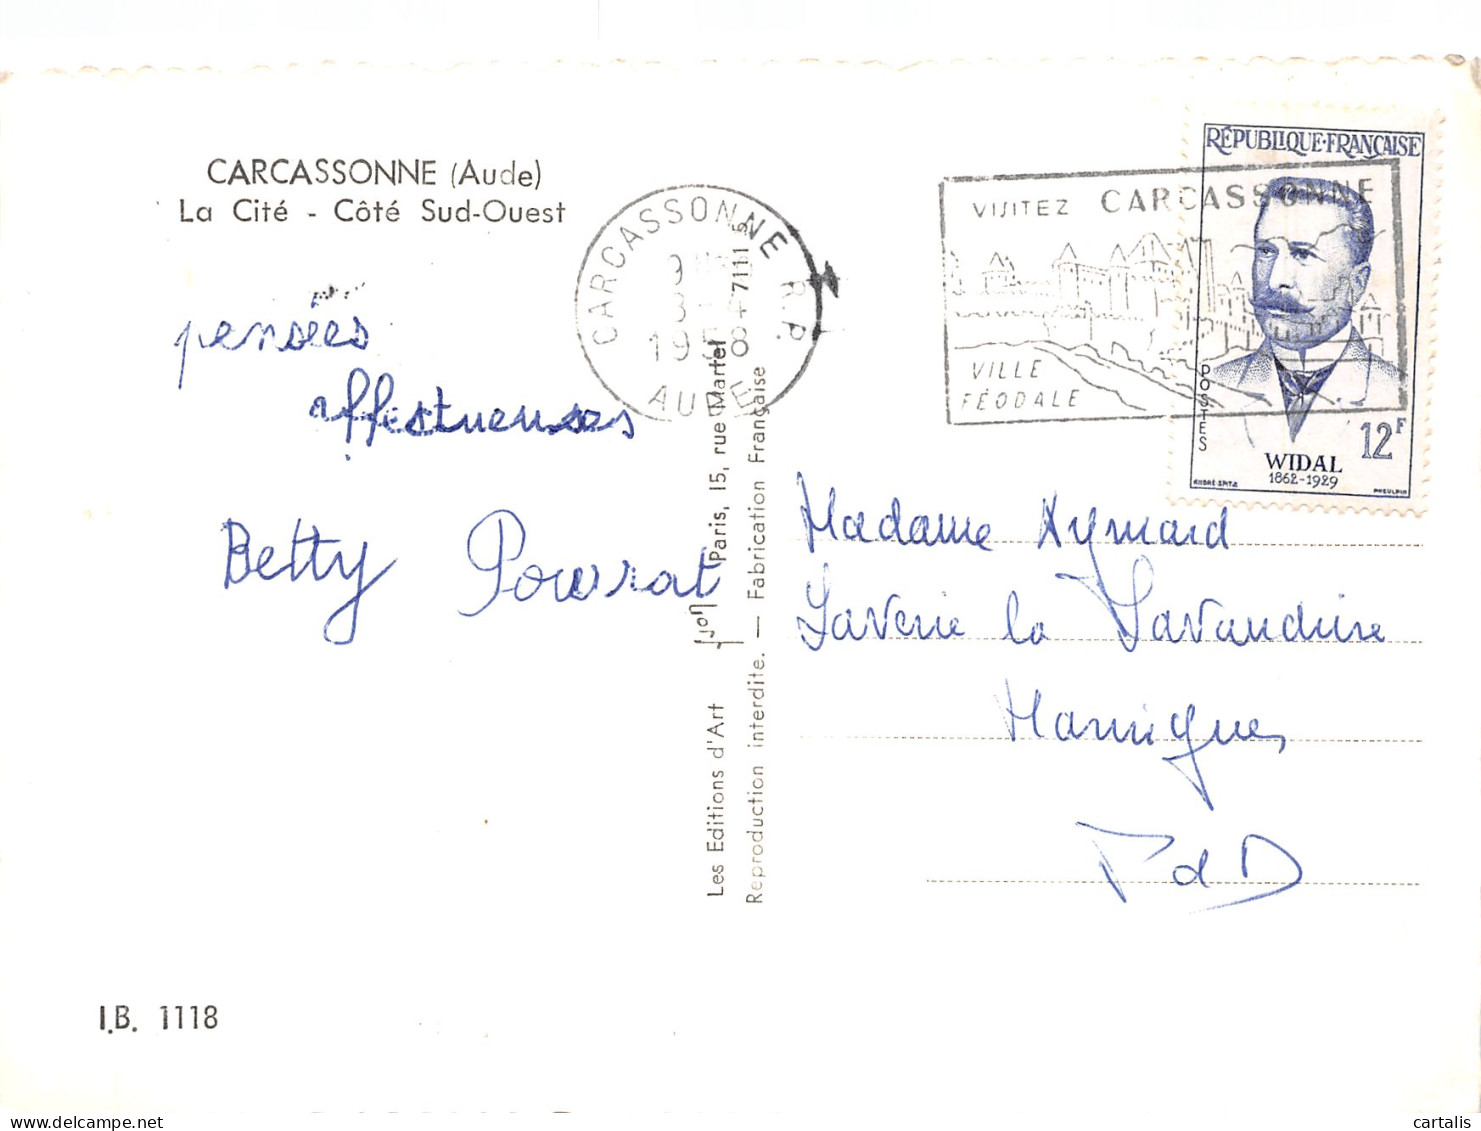 CARCASSONNE (Aude)
La Cité - Côté Sud-Ouest
pensées
affectueuses
Betty Pourrat
I.B. 1118
CARCASSONNE R.P.
9
1958
AUDE
Les Editions d'Art Yvon Paris, 15, rue Martel
Reproduction interdite. — Fabrication Française
VISITEZ CARCASSONNE
VILLE
FÉODALE
RÉPUBLIQUE·FRANÇAISE
POSTES
12F
WIDAL
1862-1929
ANDRÉ SPITZ
PHEULPIN
Madame Aymard
Laverie la Lavandière
Manigues
P d D
cartalis